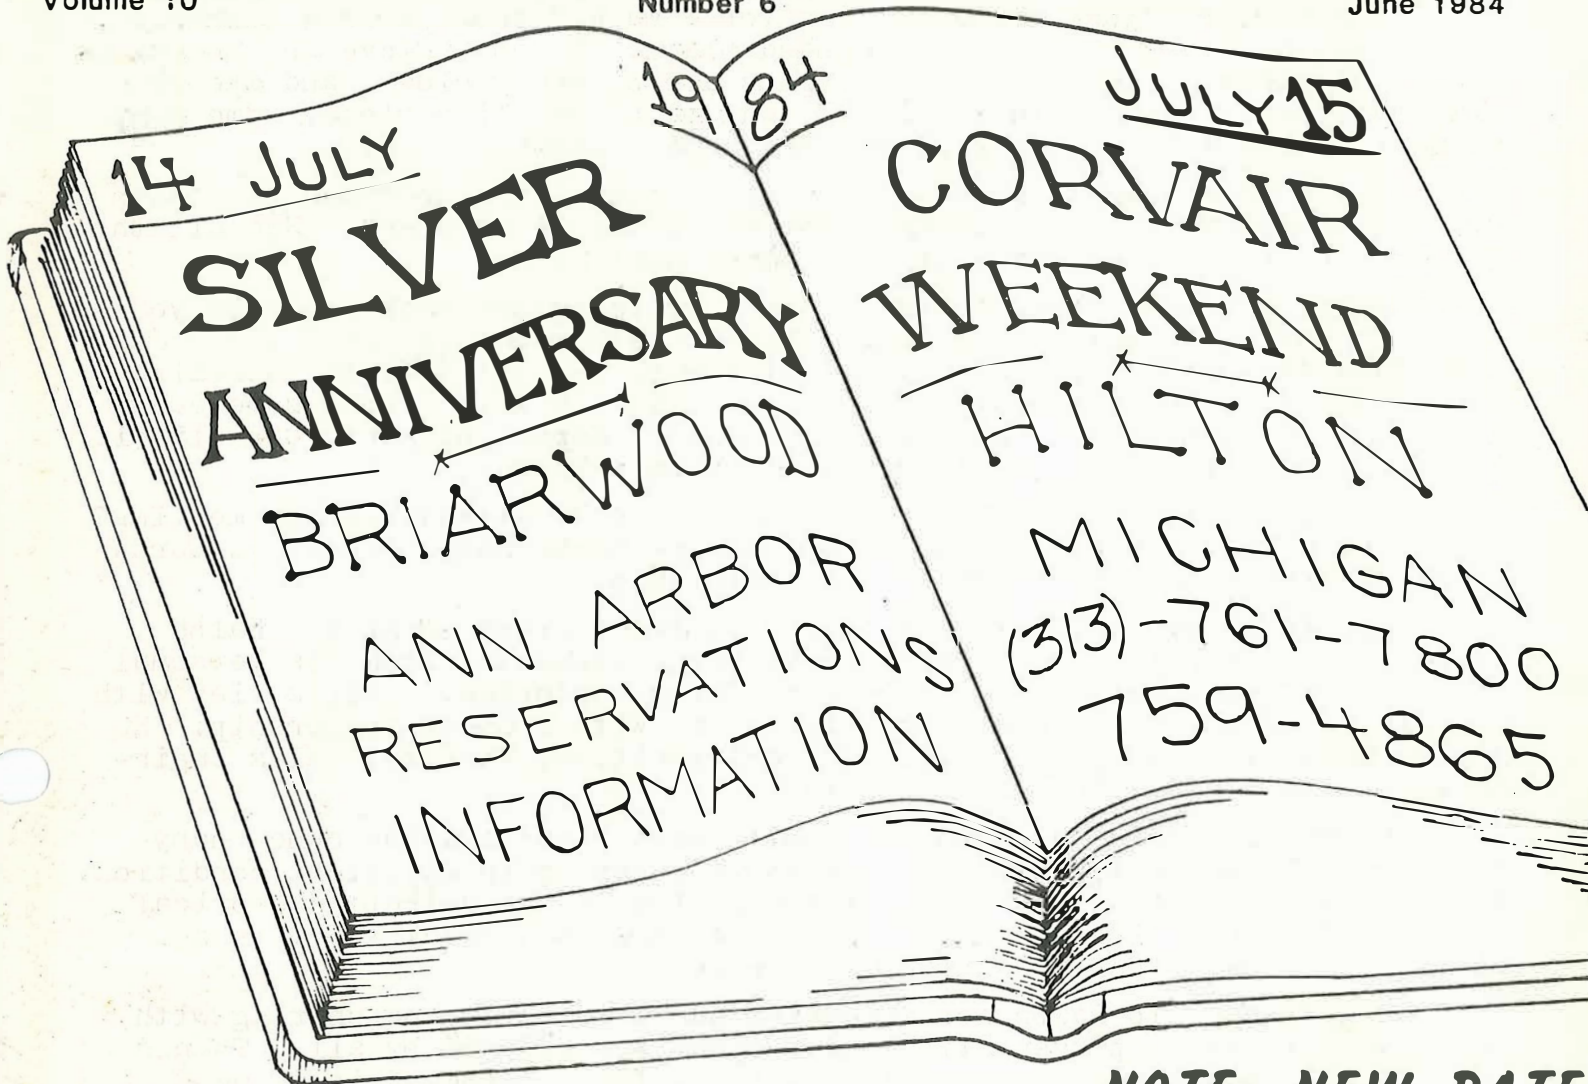 Volume 10
Number 6
June 1984
19 84
14 JULY
SILVER
ANNIVERSARY
BRIARWOOD
ANN ARBOR
RESERVATIONS
INFORMATION
JULY 15
CORVAIR
WEEKEND
HILTON
MICHIGAN
(313)-761-7800
759-4865
NOTE NEW DATE